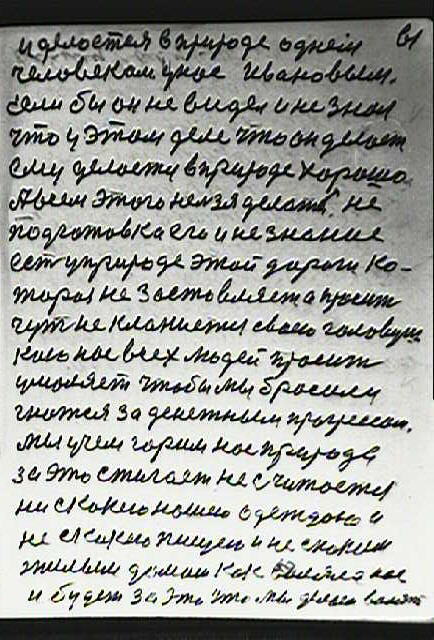 61
и делоется в природе однем
человеком уное Ивановым.
если бы он не видел и не знал
что у этом деле что он делает
ему делоется в природе хорошо
А всем этого нельзя делать, не
подготовка его и не знание
ест у природе этой дороги ко-
торая не заставляет а просит
чут не кланиется своею головушк
кою нас всех людей просит
умоляет чтобы мы бросили
гнатся за денежным прогрессом.
мы учем горим нас природа
за это стигает не считоется
ни скакою нашею одеждою и
не скакою пищею и не скаким
жилым домом как
и будет за это что мы делаем